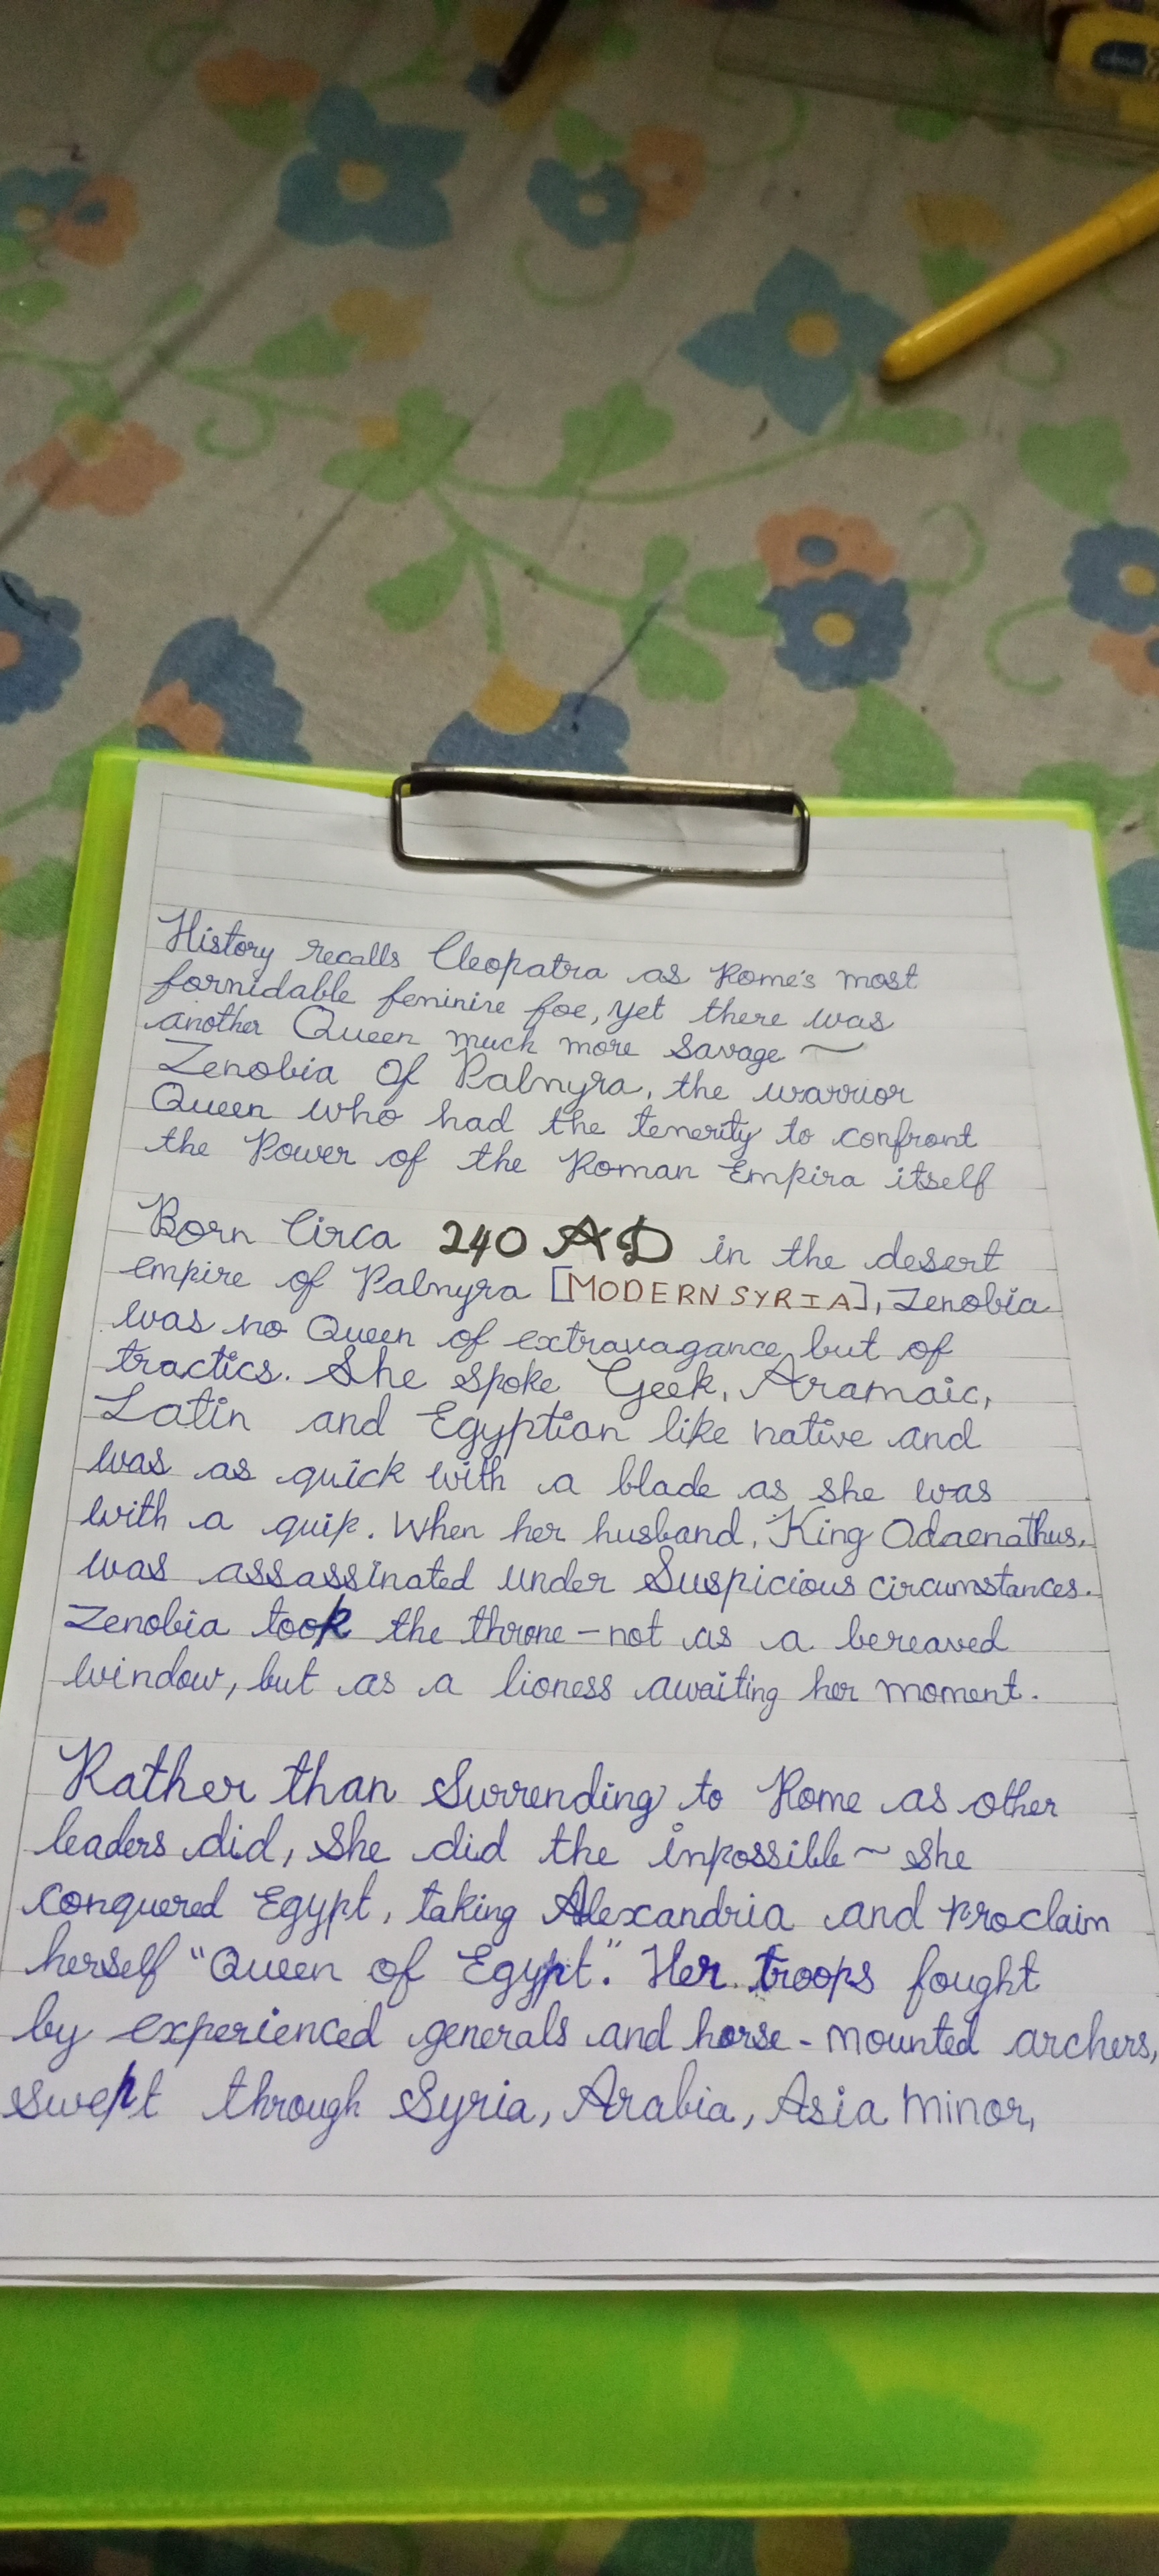 History recalls Cleopatra as Rome's most
fornidable feminine foe, yet there was
another Queen much more savage ~
Zenobia Of Palnyra, the warrior
Queen who had the tenerity to confront
the Power of the Roman Empira itself
Born Circa 240 AD in the desert
empire of Palnyra [MODERN SYRIA], Zenobia
was no Queen of extravagance but of
tractics. She spoke Geek, Aramaic,
Latin and Egyptian like native and
was as quick with a blade as she was
with a quip. When her husband, King Odaenathus,
was assassinated under Suspicious circumstances.
Zenobia took the throne - not as a bereaved
window, but as a lioness awaiting her moment.
Rather than Surrending to Rome as other
leaders did, She did the inpossible ~ she
conquered Egypt, taking Alexandria and proclaim
herself "Queen of Egypt." Her troops fought
by experienced generals and horse - mounted archers,
swept through Syria, Arabia, Asia minor,